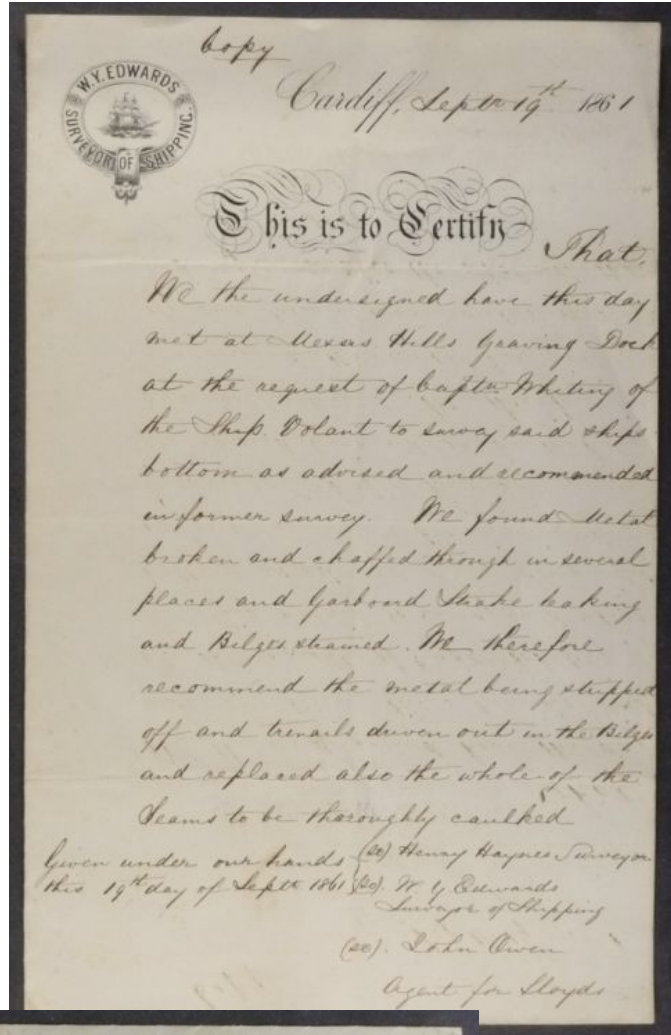 Copy
W.Y. EDWARDS
SURVEYOR OF SHIPPING.
Cardiff, Septr 19th 1861
This is to Certify
That,
We the undersigned have this day
met at Messrs Hills Graving Dock
at the request of Captn Whiting of
the Ship. Volant to survey said ships
bottom as advised and recommended
in former survey. We found Metal
broken and chaffed through in several
places and Garboard Strake leaking
and Bilges strained. We therefore
recommend the metal being stripped
off and trenails driven out in the Bilges
and replaced also the whole of the
Seams to be thoroughly caulked
Given under our hands (sd) Henry Haynes Surveyor
this 19th day of Septr 1861 (sd). W. Y Edwards
Surveyor of Shipping
(sd). John Owen
Agent for Lloyds